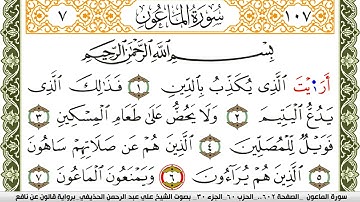 ١٠٧ سُورَةُ الْمَاعُونِ ٧
بِسْمِ اللَّهِ الرَّحْمَٰنِ الرَّحِيمِ
أَرَٰيْتَ الَّذِى يُكَذِّبُ بِالدِّينِ ١ فَذَٰلِكَ الَّذِى
يَدُعُّ الْيَتِيمَ ٢ وَلَا يَحُضُّ عَلَىٰ طَعَامِ الْمِسْكِينِ ٣
فَوَيْلٌ لِّلْمُصَلِّينَ ٤ الَّذِينَ هُمْ عَن صَلَاتِهِمْ سَاهُونَ
٥ الَّذِينَ هُمْ يُرَآءُونَ ٦ وَيَمْنَعُونَ الْمَاعُونَ
سورة الماعون .. الصفحة ٦٠٢.. الحزب ٦٠ الجزء ٣٠.. بصوت الشيخ علي عبد الرحمن الحذيفي برواية قالون عن نافع